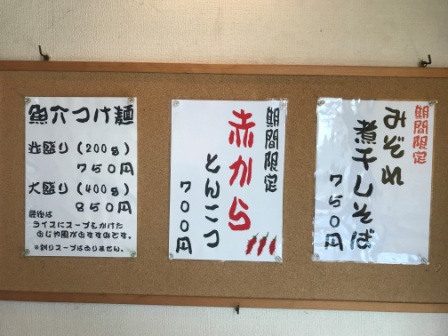 魚介つけ麺
並盛り(200g)
750円
大盛り(400g)
850円
最後は
ライスにスープをかけた
おじや風がおすすめです。
※割りスープはありません。
期間限定
赤から
とんこつ
700円
期間限定
みぞれ
煮干しそば
750円